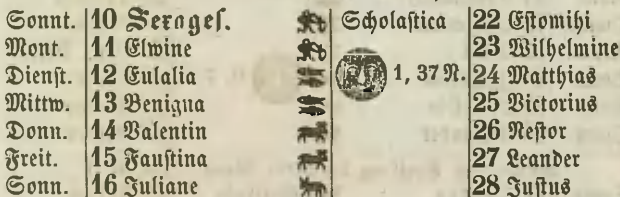 Sonnt. 10 Sexages. Scholastica 22 Estomihi
Mont. 11 Elwine 23 Wilhelmine
Dienst. 12 Eulalia 1, 37 N. 24 Matthias
Mittw. 13 Benigna 25 Victorius
Donn. 14 Valentin 26 Nestor
Freit. 15 Faustina 27 Leander
Sonn. 16 Juliane 28 Justus